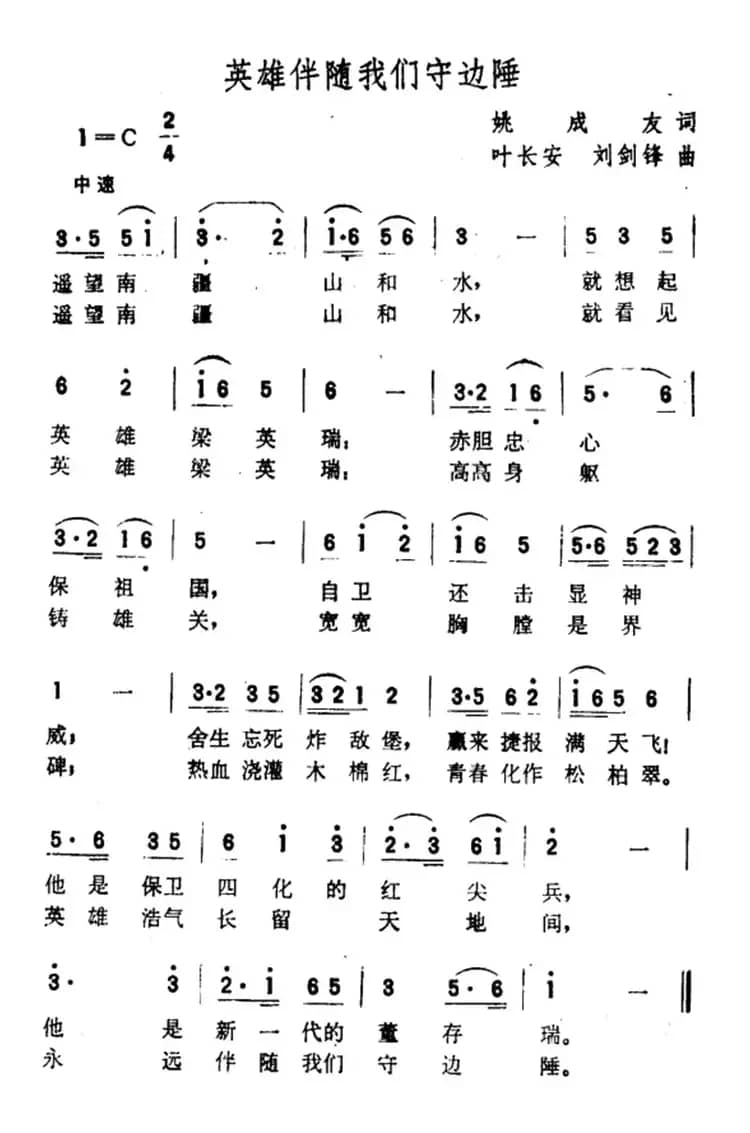 英雄伴随我们守边陲
1=C 2/4
姚成友词
叶长安 刘剑锋曲
中速
3·5 5i | 3· 2 | i·6 56 | 3 — | 5 3 5 |
遥望南疆 山和水，就想起
遥望南疆 山和水，就看见
6 2 | i6 5 | 6 — | 3·2 16 | 5· 6 |
英雄梁英瑞；赤胆忠心
英雄梁英瑞；高高身躯
3·2 16 | 5 — | 6 i 2 | i6 5 | 5·6 523 |
保祖国，自卫还击显神
铸雄关，宽宽胸膛是界
1 — | 3·2 35 | 3212 | 3·5 62 | i65 6 |
威；舍生忘死炸敌堡，赢来捷报满天飞！
碑；热血浇灌木棉红，青春化作松柏翠。
5·6 35 | 6 i 3 | 2·3 6i | 2 — |
他是保卫四化的红尖兵，
英雄浩气长留天地间，
3· 3 | 2·i 65 | 3 5·6 | i — ‖
他是新一代的董存瑞。
永远伴随我们守边陲。